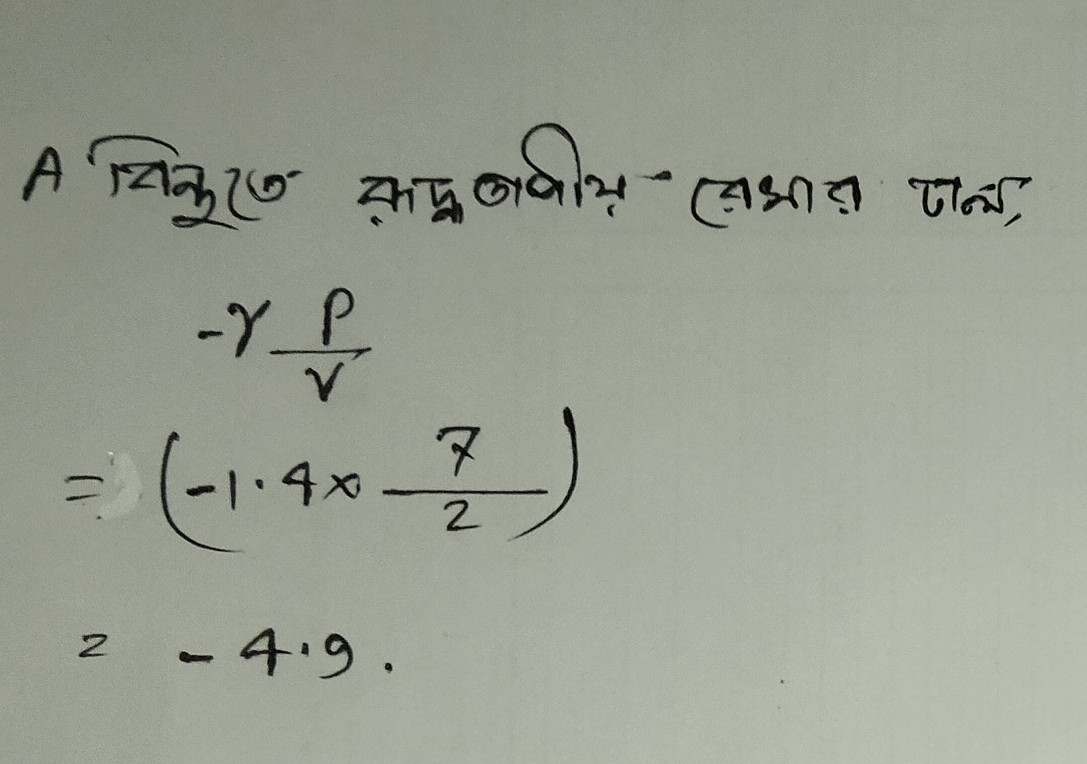 A বিন্দুতে রুদ্ধতাপীয় রেখার ঢাল,
-γ P/V
= (-1.4 × 7/2)
= -4.9.